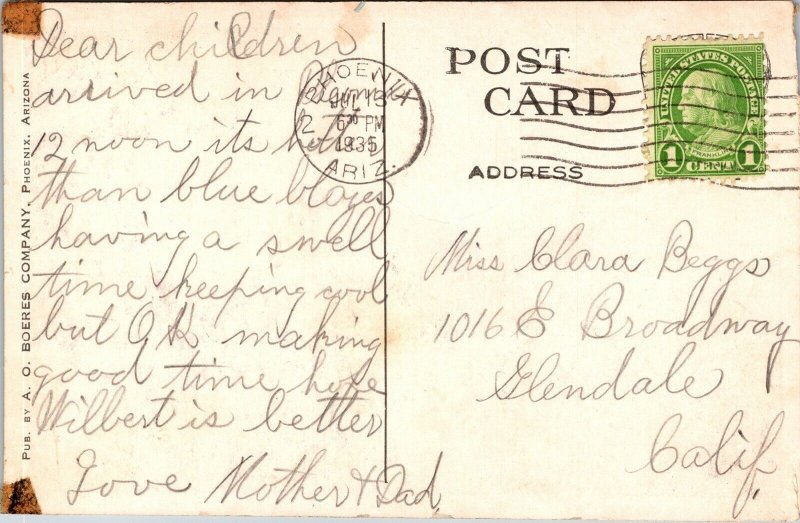 Dear children
arrived in
12 noon its hotter
than blue blazes
having a swell
time keeping cool
but O.K. making
good time hope
Wilbert is better
Love Mother & Dad.
PHOENIX
JUL 13
6 30 PM
1935
ARIZ.
2
POST
CARD
ADDRESS
UNITED STATES POSTAGE
FRANKLIN
1 CENT 1
Miss Clara Beggs
1016 E Broadway
Glendale
Calif.
PUB. BY A. O. BOERES COMPANY, PHOENIX, ARIZONA